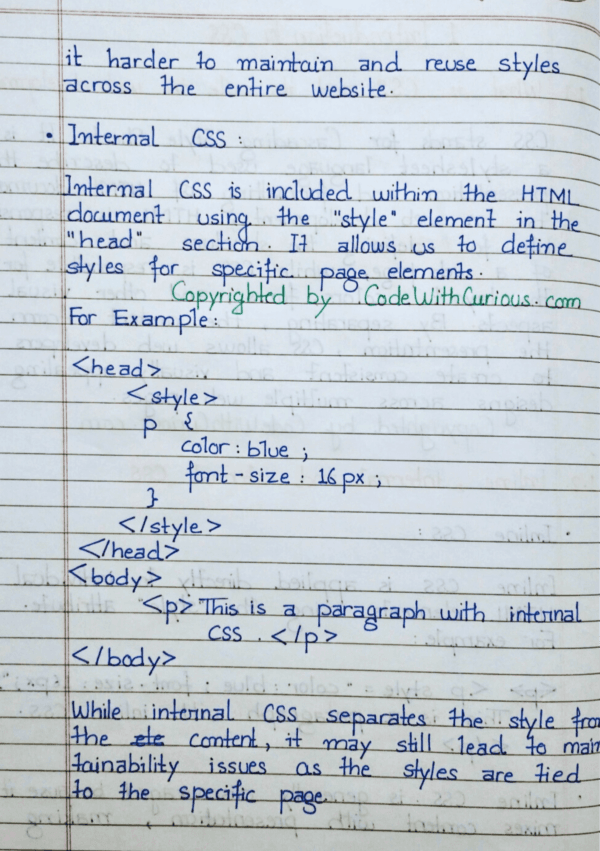 it harder to maintain and reuse styles
across the entire website.
• Internal CSS :
Internal CSS is included within the HTML
document using the "style" element in the
"head" section. It allows us to define
styles for specific page elements.
Copyrighted by CodeWithCurious.com
For Example :
<head>
<style>
p {
color : blue ;
font-size : 16px ;
}
</style>
</head>
<body>
<p> This is a paragraph with internal
CSS . </p>
</body>
While internal CSS separates the style from
the content, it may still lead to main
tainability issues as the styles are tied
to the specific page